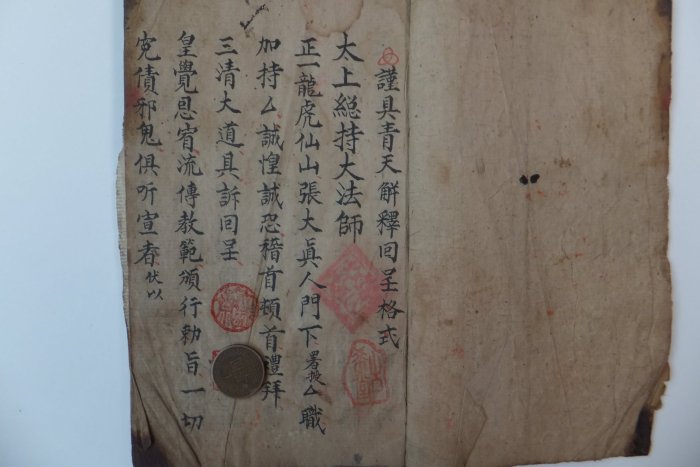 謹具青天解釋囙呈格式
太上総持大法師
正一龍虎仙山張大眞人門下署授厶職
加持厶誠惶誠恐稽首頓首禮拜
三清大道具訴囙呈
皇覺恩宥流傳教範頒行勅旨一切
寃債邪鬼俱听宣者伏以